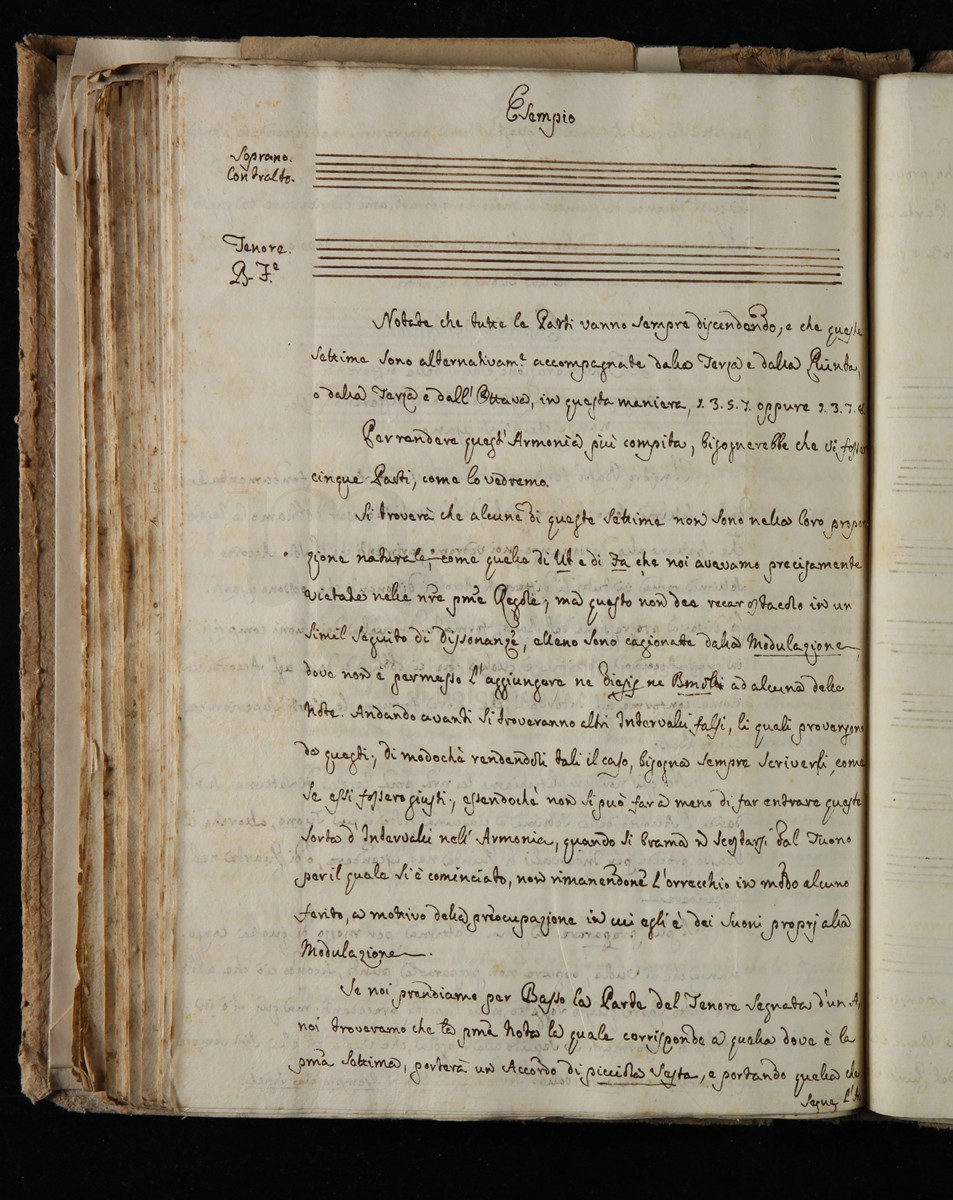 Esempio
Soprano.
Contralto.
Tenore.
B. F.e
Notate che tutte le Parti vanno sempre discendendo, e che queste
settime sono alternativam.e accompagnate dalla Terza e dalla Quinta,
o dalla Terza e dall' Ottava, in questa maniera, 1. 3. 5. 7. oppure 1. 3. 7. 8
Per rendere quest' Armonia più compita, bisognerebbe che vi fosser
cinque Parti, come lo vedremo.
Si troverà che alcune di queste settime non sono nella loro propor
zione naturale, come quella di Ut e di Fa che noi avevamo precisamente
vietate nelle nre pme Regole; ma questo non dee recar ostacolo in un
simil seguito di Dissonanze, elleno sono cagionate dalla Modulazione,
dove non è permesso l'aggiungere ne Diesis ne Bmolli ad alcuna delle
Note. Andando avanti si troveranno altri Intervalli falsi, li quali provengono
da questi; di modochè rendendoli tali il caso, bisogna sempre scriverli, come
se essi fossero giusti, essendochè non si può far a meno di far entrare queste
sorta d'Intervalli nell' Armonia, quando si brama n scostarsi dal Tuono
per il quale si è cominciato, non rimanendone l'orrecchio in modo alcuno
ferito, a motivo della preocupazione in cui egli è dei suoni proprj alla
Modulazione.
Se noi prendiamo per Basso la Parte del Tenore segnata d'un A,
noi troveremo che la pma Nota la quale corrisponde a quella dove è la
pma settima, porterà un Accordo di picciola Sesta, e portando quella che
Segue L'